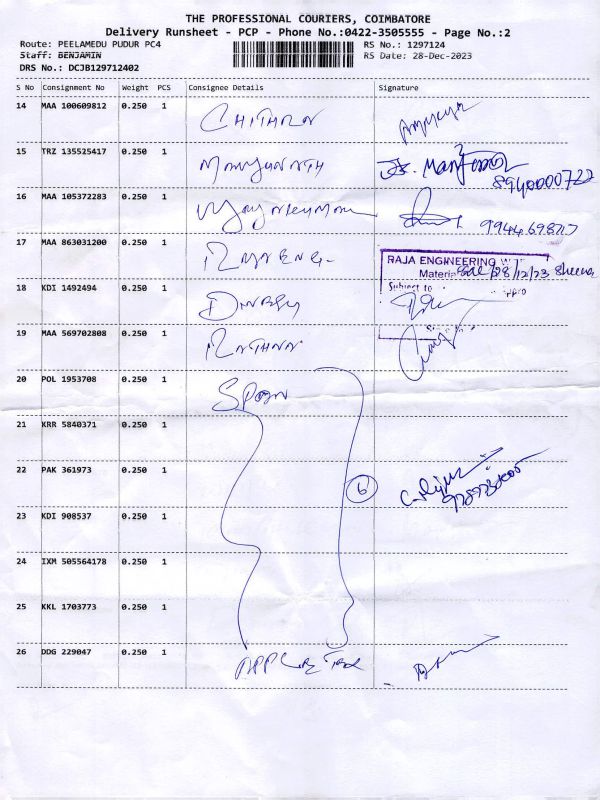 THE PROFESSIONAL COURIERS, COIMBATORE
Delivery Runsheet - PCP - Phone No.:0422-3505555 - Page No.:2
Route: PEELAMEDU PUDUR PC4 RS No.: 1297124
Staff: BENJAMIN RS Date: 28-Dec-2023
DRS No.: DCJB129712402
S No Consignment No Weight PCS Consignee Details Signature
14 MAA 100609812 0.250 1 CHITHRA
15 TRZ 135525417 0.250 1 MANJUNATH
8940000722
16 MAA 105372283 0.250 1
17 MAA 863031200 0.250 1 RAJA ENG.
RAJA ENGINEERING
Material 28/12/23
Subject to
18 KDI 1492494 0.250 1
19 MAA 569702808 0.250 1 RATHNA
20 POL 1953708 0.250 1
21 KRR 5840371 0.250 1
22 PAK 361973 0.250 1
6
23 KDI 908537 0.250 1
24 IXM 505564178 0.250 1
25 KKL 1703773 0.250 1
26 DDG 229047 0.250 1